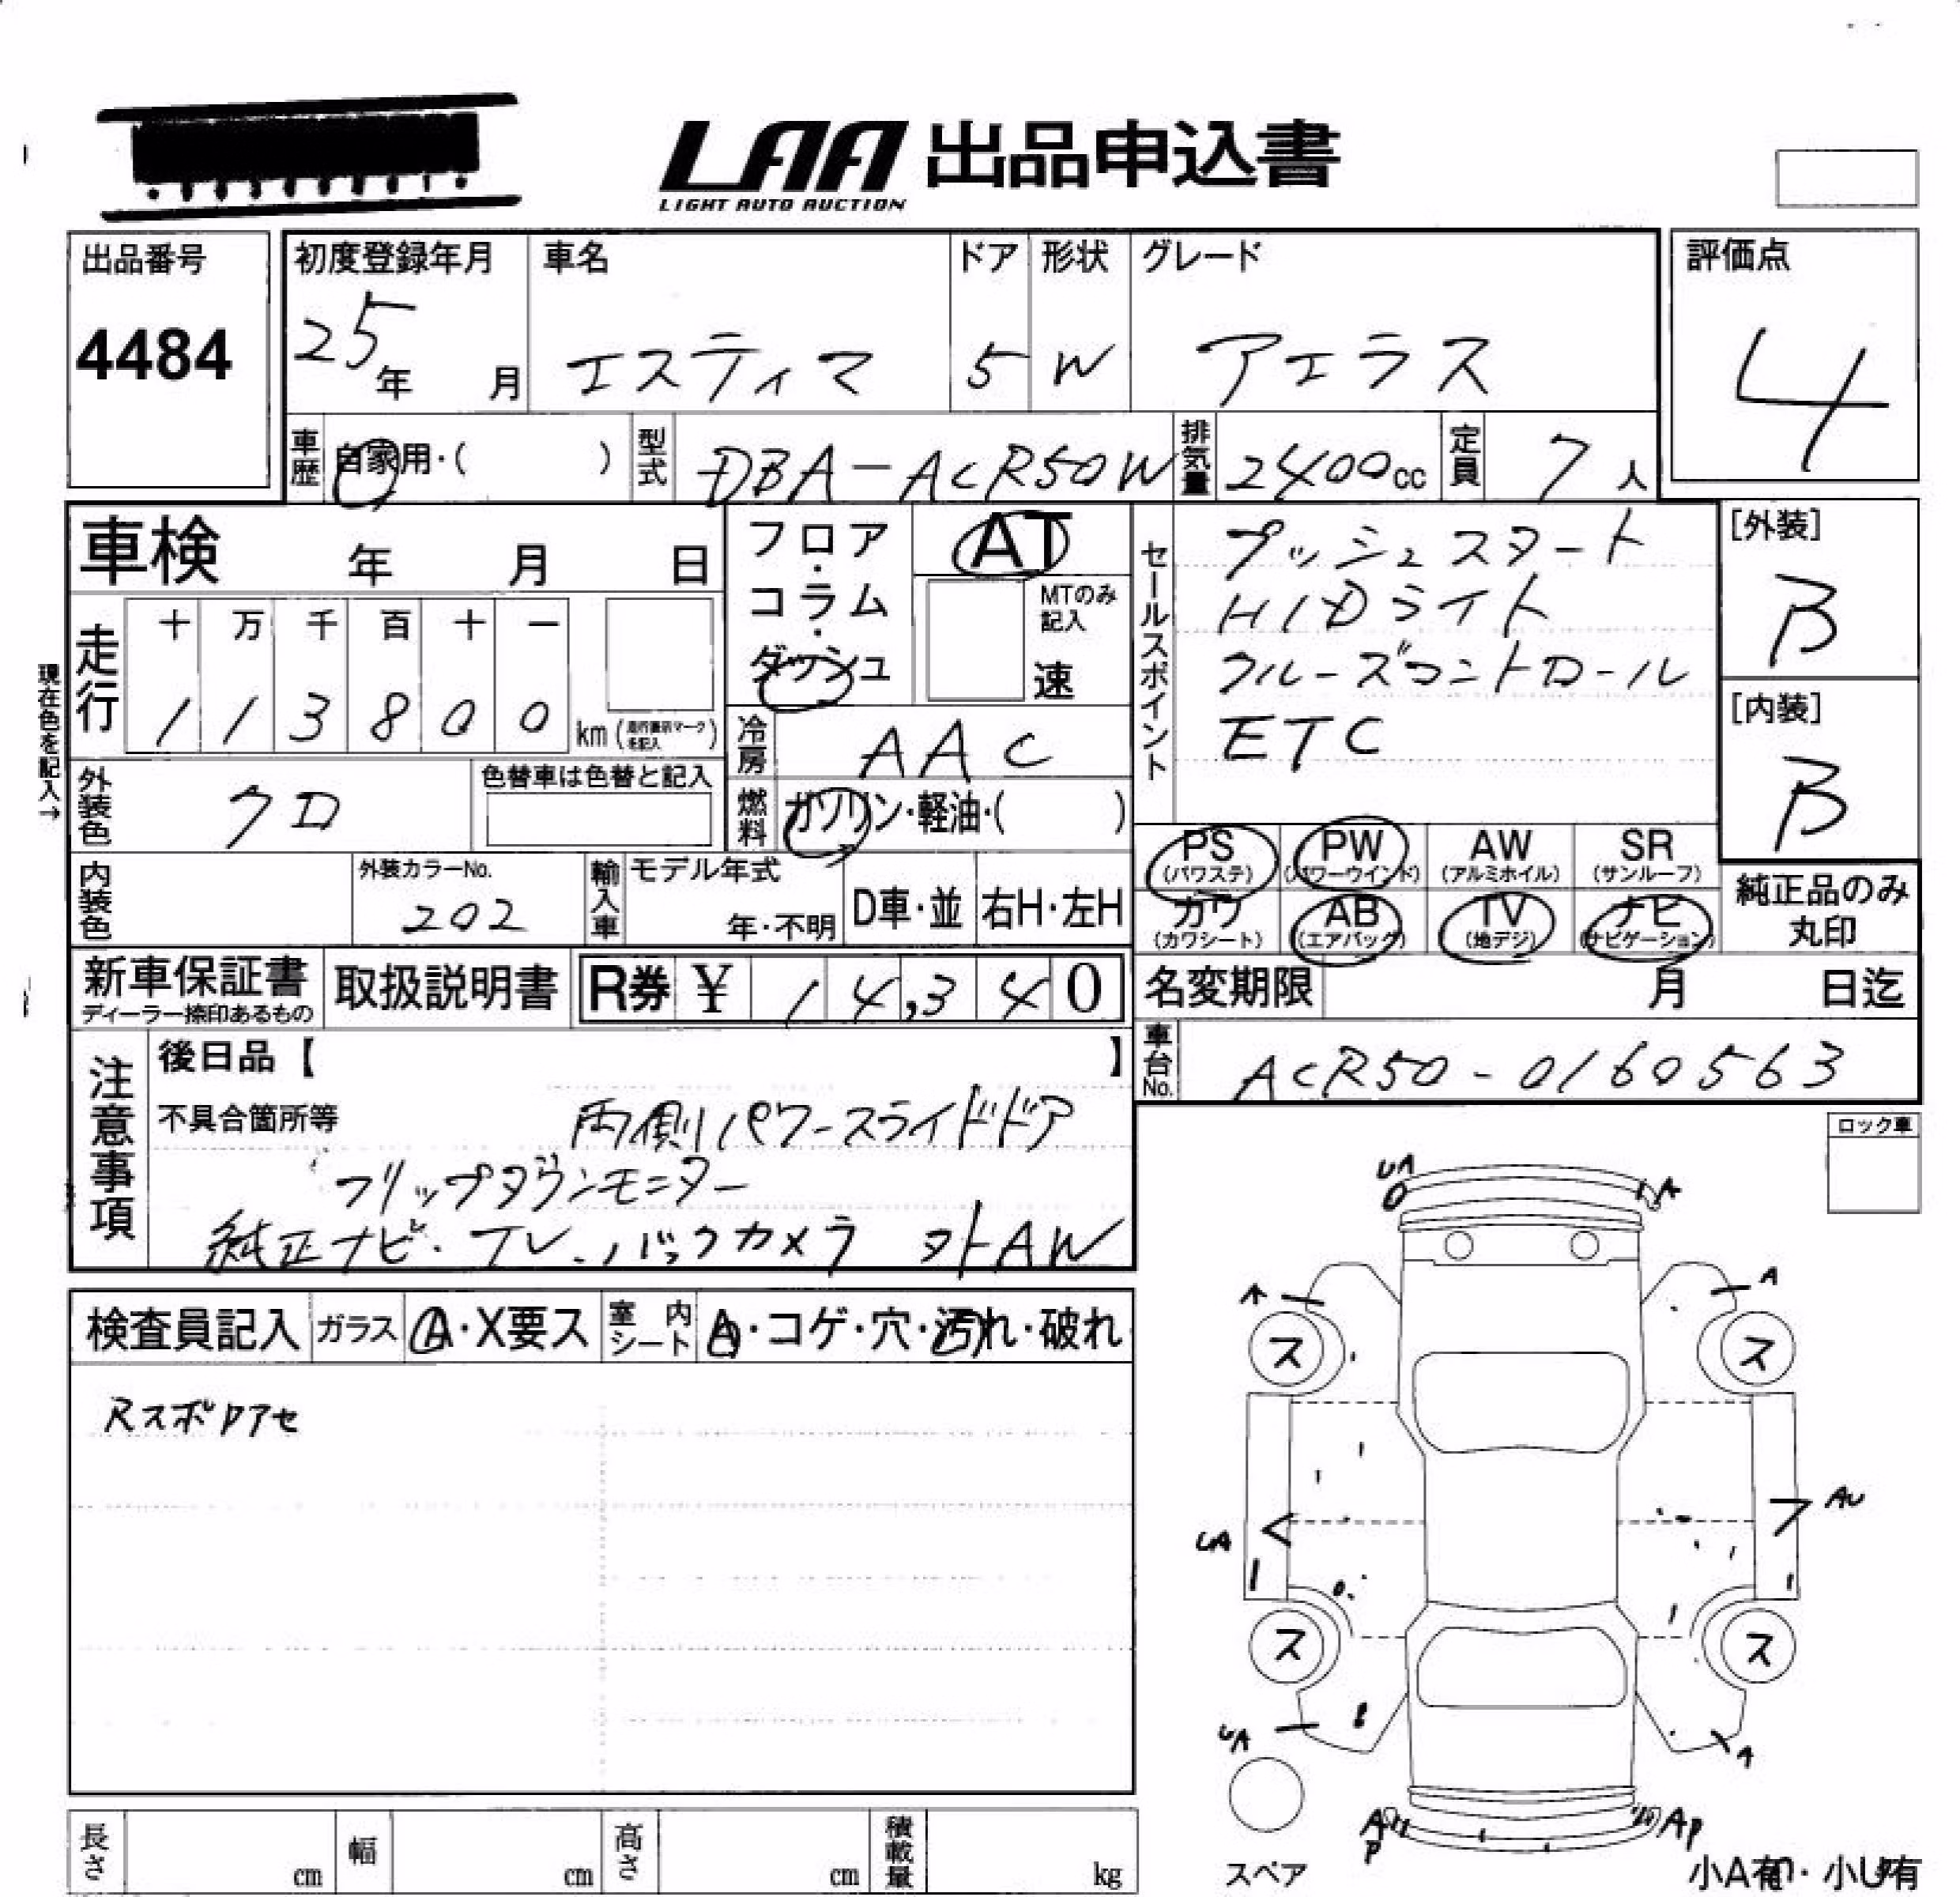 LAA 出品申込書
LIGHT AUTO AUCTION
出品番号
4484
初度登録年月
25年 月
車名
エスティマ
ドア
5
形状
W
グレード
アエラス
評価点
4
車歴 自家用・( )
型式 DBA-ACR50W
排気量 2400cc
定員 7人
車検 年 月 日
現在色を記入→
走行
十 万 千 百 十 一
1 1 3 8 0 0 km
フロア・コラム・ダッシュ
AT
MTのみ記入
速
冷房 AAC
燃料 ガソリン・軽油・( )
セールスポイント
プッシュスタート
HIDライト
クルーズコントロール
ETC
[外装]
B
[内装]
B
外装色 クロ
色替車は色替と記入
内装色
外装カラーNo.
202
輸入車
モデル年式
年・不明
D車・並
右H・左H
PS (パワステ)
PW (パワーウインド)
AW (アルミホイル)
SR (サンルーフ)
カワ (カワシート)
AB (エアバッグ)
TV (地デジ)
ナビ (ナビゲーション)
純正品のみ丸印
新車保証書
ディーラー捺印あるもの
取扱説明書
R券 ¥ 14,340
名変期限 月 日迄
車台No. ACR50-0160563
注意事項
後日品【 】
不具合箇所等 両側パワースライドドア
フリップダウンモニター
純正ナビ・TV・バックカメラ 外AW
ロック車
検査員記入
ガラス A・X要ス
室内シート A・コゲ・穴・汚れ・破れ
UA
A
A
A
ス
ス
UA
AU
ス
ス
UA
A
AP
AP
スペア
長さ cm
幅 cm
高さ cm
積載量 kg
小A有・小U有